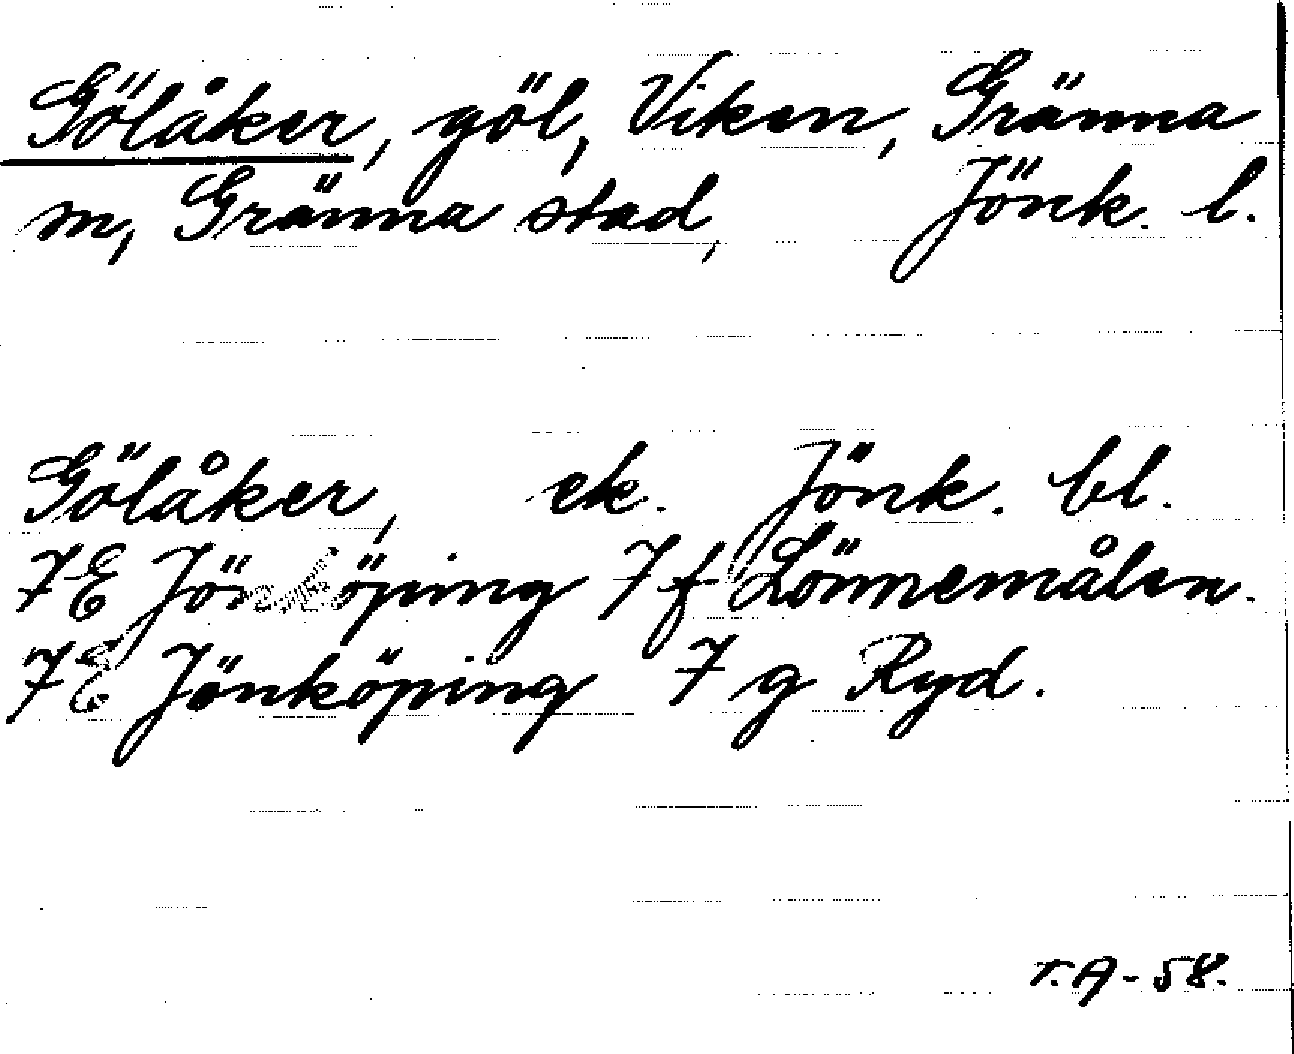 Gölåker, göl, Viken, Gränna
m, Gränna stad, Jönk. l.
Gölåker, ek. Jönk. bl.
7E Jönköping 7f Lönnemålen.
7E Jönköping 7g Ryd.
T.A-58.